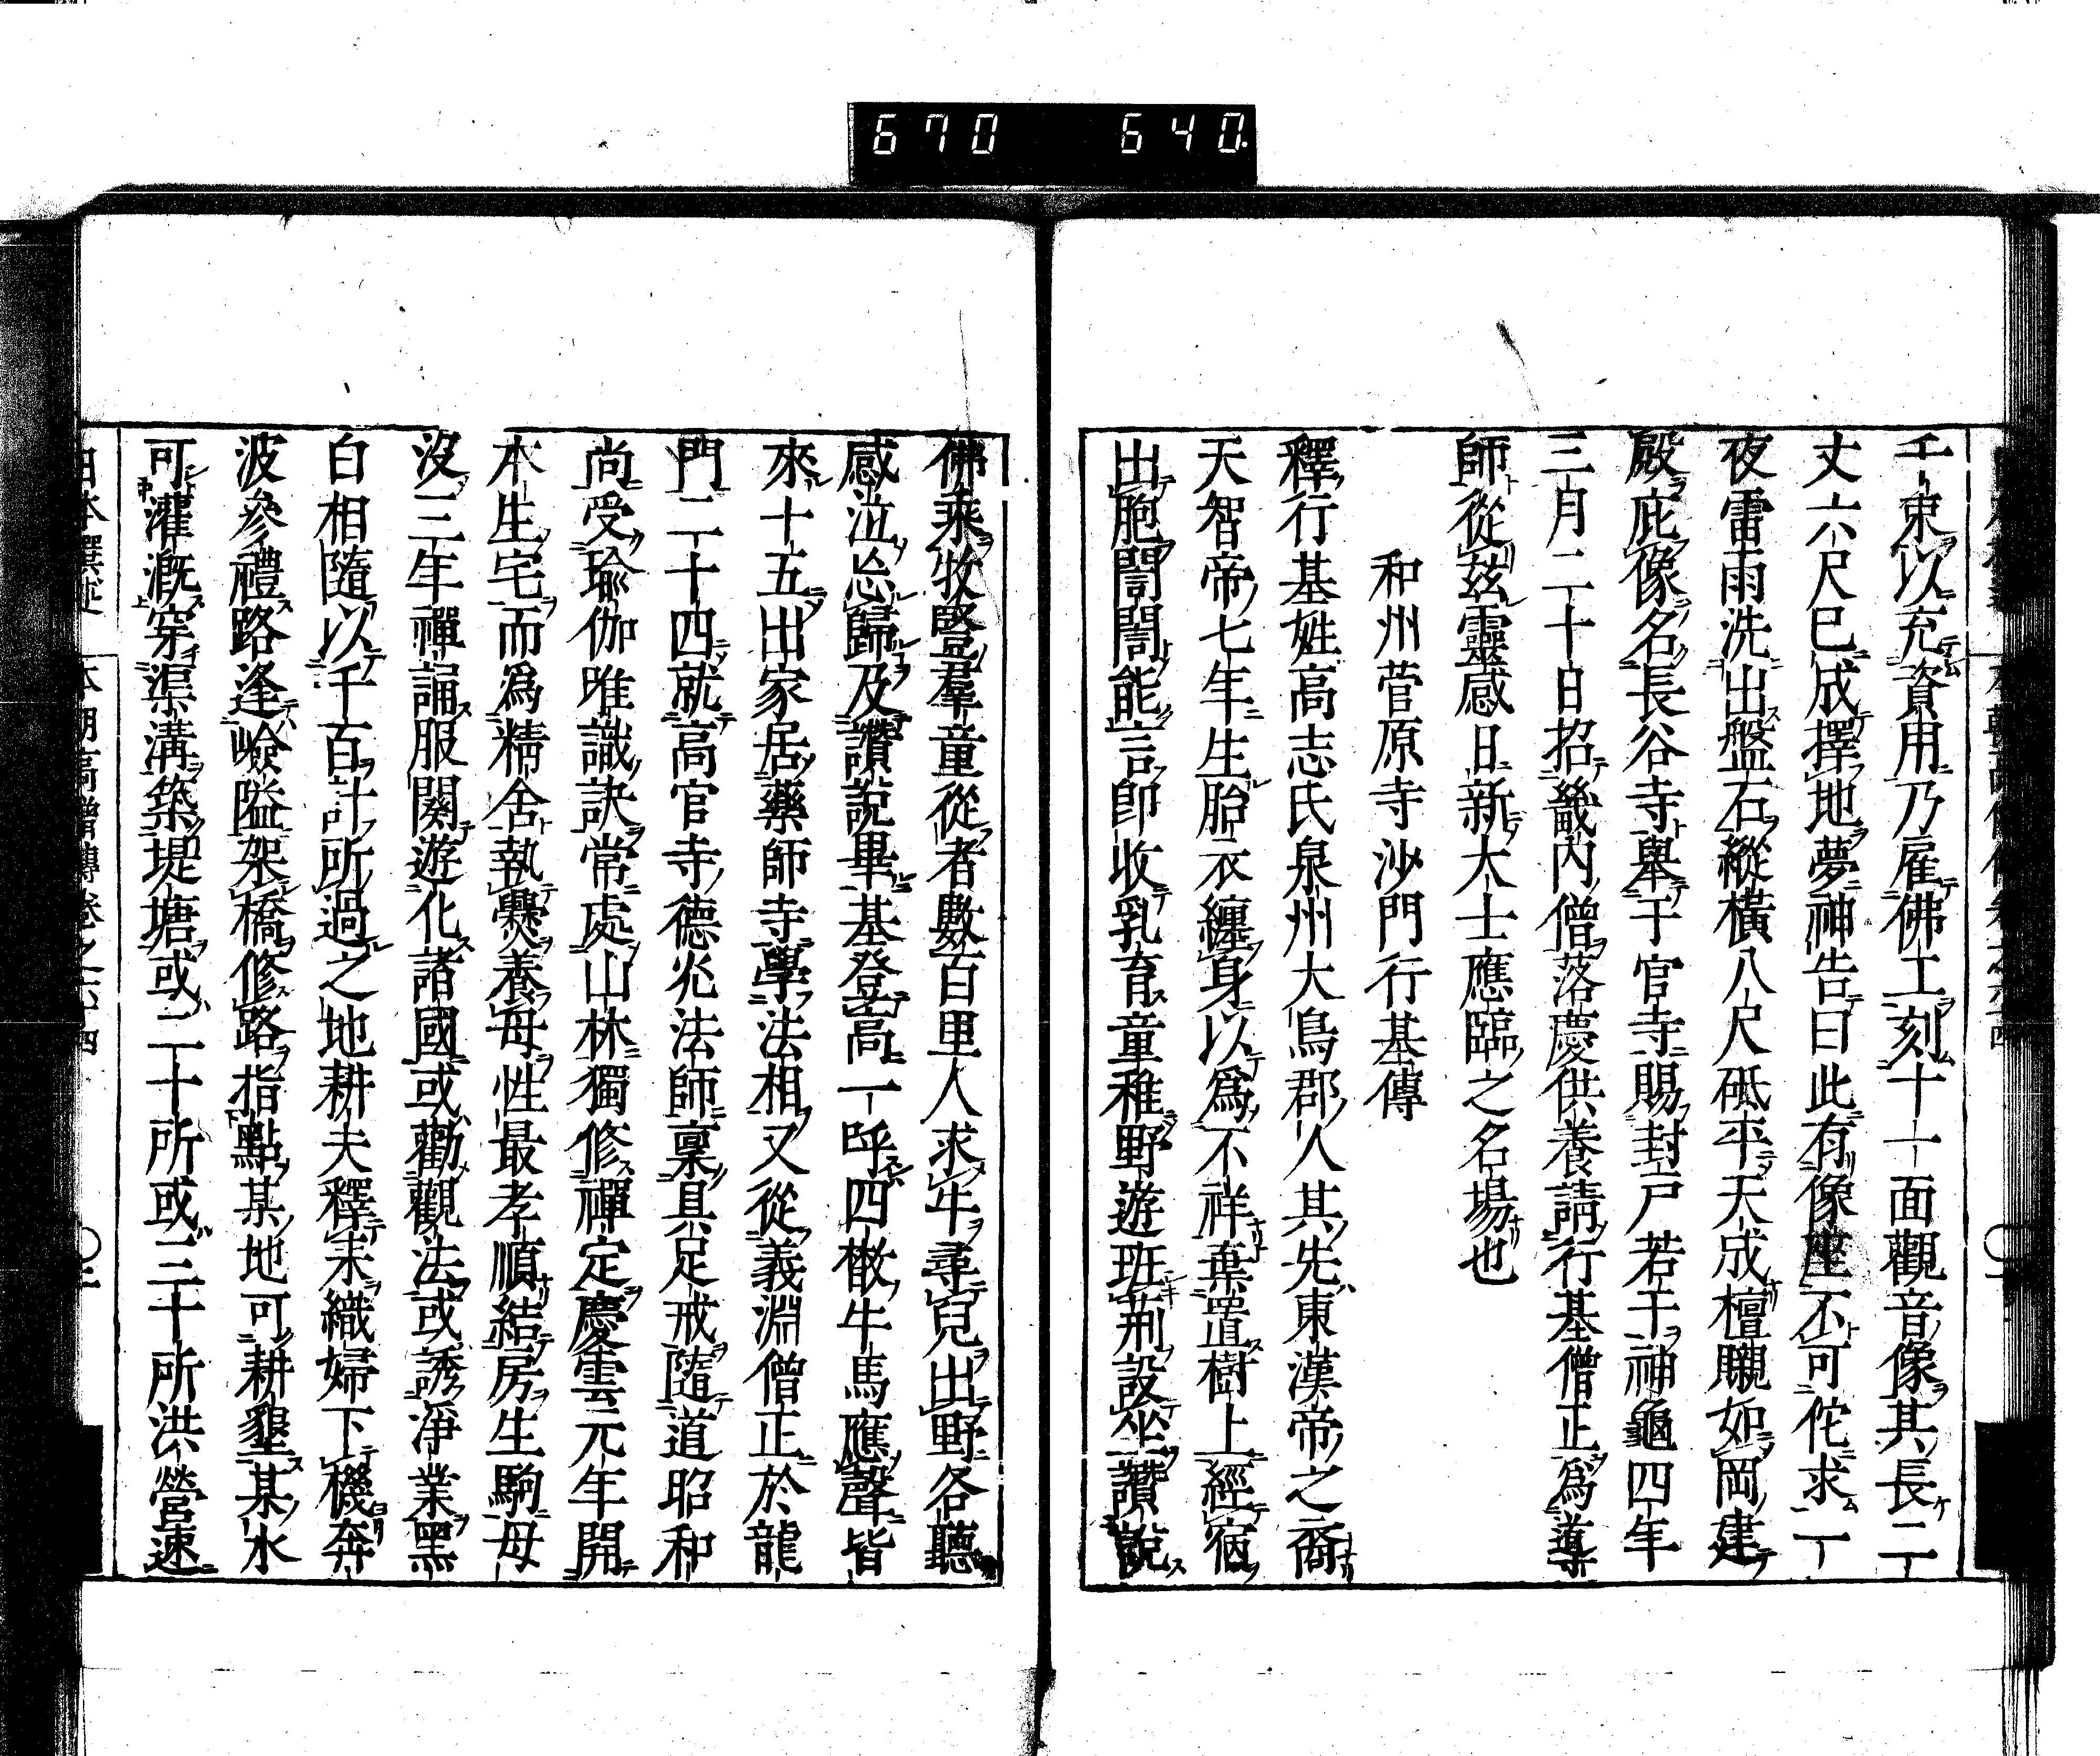 670 640.
千束以充資用乃雇佛工刻十一面觀音像其長二
丈六尺已成擇地夢神告曰此有像座不可佗求一
夜雷雨洗出盤石縱橫八尺砥平天成檀䞋如岡建
殿庇像名長谷寺舉于官寺賜封戸若干神龜四年
三月二十日招畿内僧落慶供養請行基僧正爲導
師從茲靈感日新大士應臨之名場也
和州菅原寺沙門行基傳
釋行基姓高志氏泉州大鳥郡人其先東漢帝之裔
天智帝七年生胎衣纏身以爲不祥棄置樹上經宿
出胞誾誾能言卽收乳育童稚野遊班荆設坐讚說
佛乘牧豎羣童從者數百里人求牛尋兒出野各聽
感泣忘歸及讚說畢基登高一呼四散牛馬應聲皆
來十五出家居藥師寺學法相又從義淵僧正於龍
門二十四就高官寺德兆法師稟具足戒隨道昭和
尚受瑜伽唯識訣常處山林獨修禪定慶雲元年開
本生宅而爲精舍執爨養母性最孝順結房生駒母
沒三年禪誦服闋遊化諸國或勸觀法或誘淨業黑
白相隨以千百計所過之地耕夫釋耒織婦下機奔
波參禮路逢嶮隘架橋修路指點某地可耕墾某水
可灌漑穿渠溝築堤塘或二十所或三十所洪營速
本朝高僧傳卷之六十四